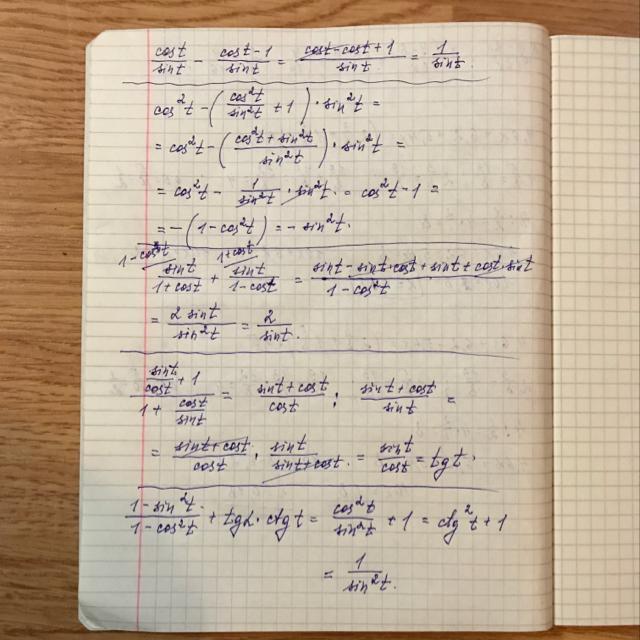 cos t / sin t − (cos t − 1) / sin t = (cos t − cos t + 1) / sin t = 1 / sin t.
cos²t − (cos²t / sin²t + 1) · sin²t =
= cos²t − ((cos²t + sin²t) / sin²t) · sin²t =
= cos²t − 1 / sin²t · sin²t = cos²t − 1 =
= −(1 − cos²t) = − sin²t.
sin t / (1 + cos t) + sin t / (1 − cos t) = (sin t − sin t · cos t + sin t + cos t · sin t) / (1 − cos²t)
= 2 sin t / sin²t = 2 / sin t.
(sin t / cos t + 1) / (1 + cos t / sin t) = (sin t + cos t) / cos t : (sin t + cos t) / sin t =
= (sin t + cos t) / cos t · sin t / (sin t + cos t) = sin t / cos t = tg t.
(1 − sin²t) / (1 − cos²t) + tg α · ctg t = cos²t / sin²t + 1 = ctg²t + 1
= 1 / sin²t.